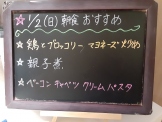 ☆ 1/2(日) 朝食 おすすめ
★ 鶏とブロッコリー マヨネーズ炒め
★ 親子煮
★ ベーコン キャベツ クリームパスタ